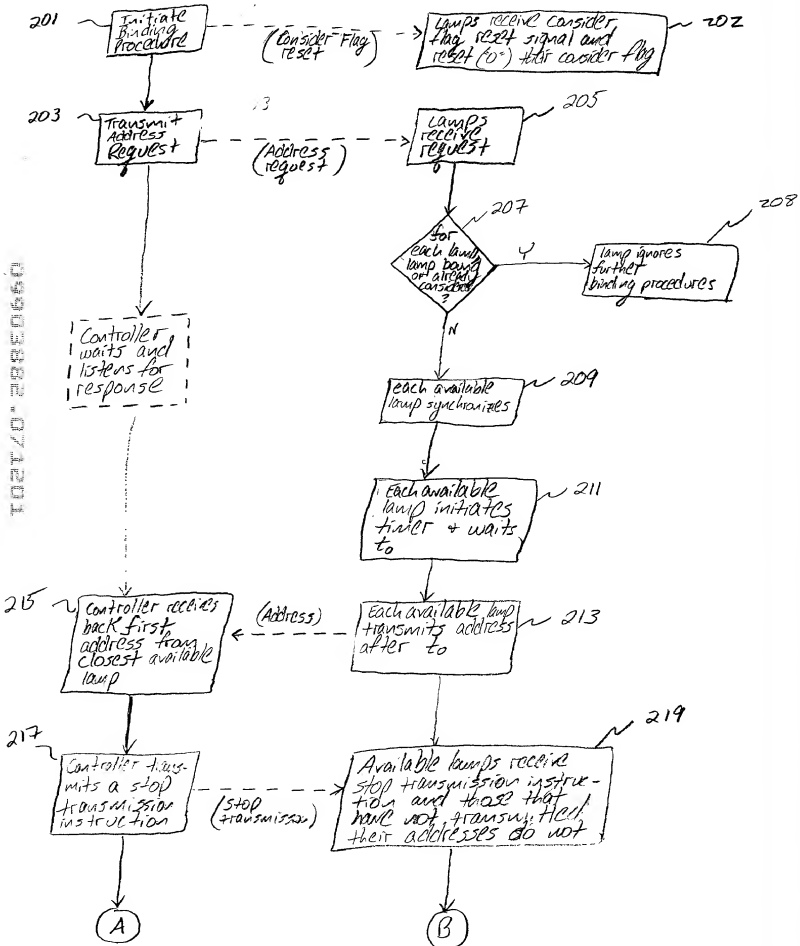 201
Initiate
Binding
Procedure
(Consider Flag
reset)
Lamps receive consider
flag reset signal and
reset ("0") their consider flag
202
203
Transmit
Address
Request
(Address
request)
Lamps
receive
request
205
207
for
each lamp
lamp bound
or already
considered
?
Y
N
lamp ignores
further
binding procedures
208
Controller
waits and
listens for
response
each available
lamp synchronizes
209
Each available
lamp initiates
timer + waits
to
211
215
Controller receives
back first
address from
closest available
lamp
(Address)
Each available lamp
transmits address
after to
213
217
Controller trans-
mits a stop
transmission
instruction
(stop
transmission)
Available lamps receive
stop transmission instruc-
tion and those that
have not transmitted
their addresses do not
219
A
B
09903882.071201